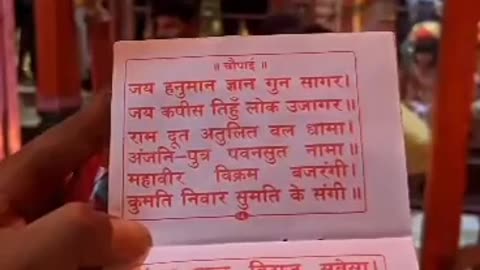 ॥ चौपाई ॥
जय हनुमान ज्ञान गुन सागर।
जय कपीस तिहुँ लोक उजागर॥
राम दूत अतुलित बल धामा।
अंजनि-पुत्र पवनसुत नामा॥
महावीर विक्रम बजरंगी।
कुमति निवार सुमति के संगी॥